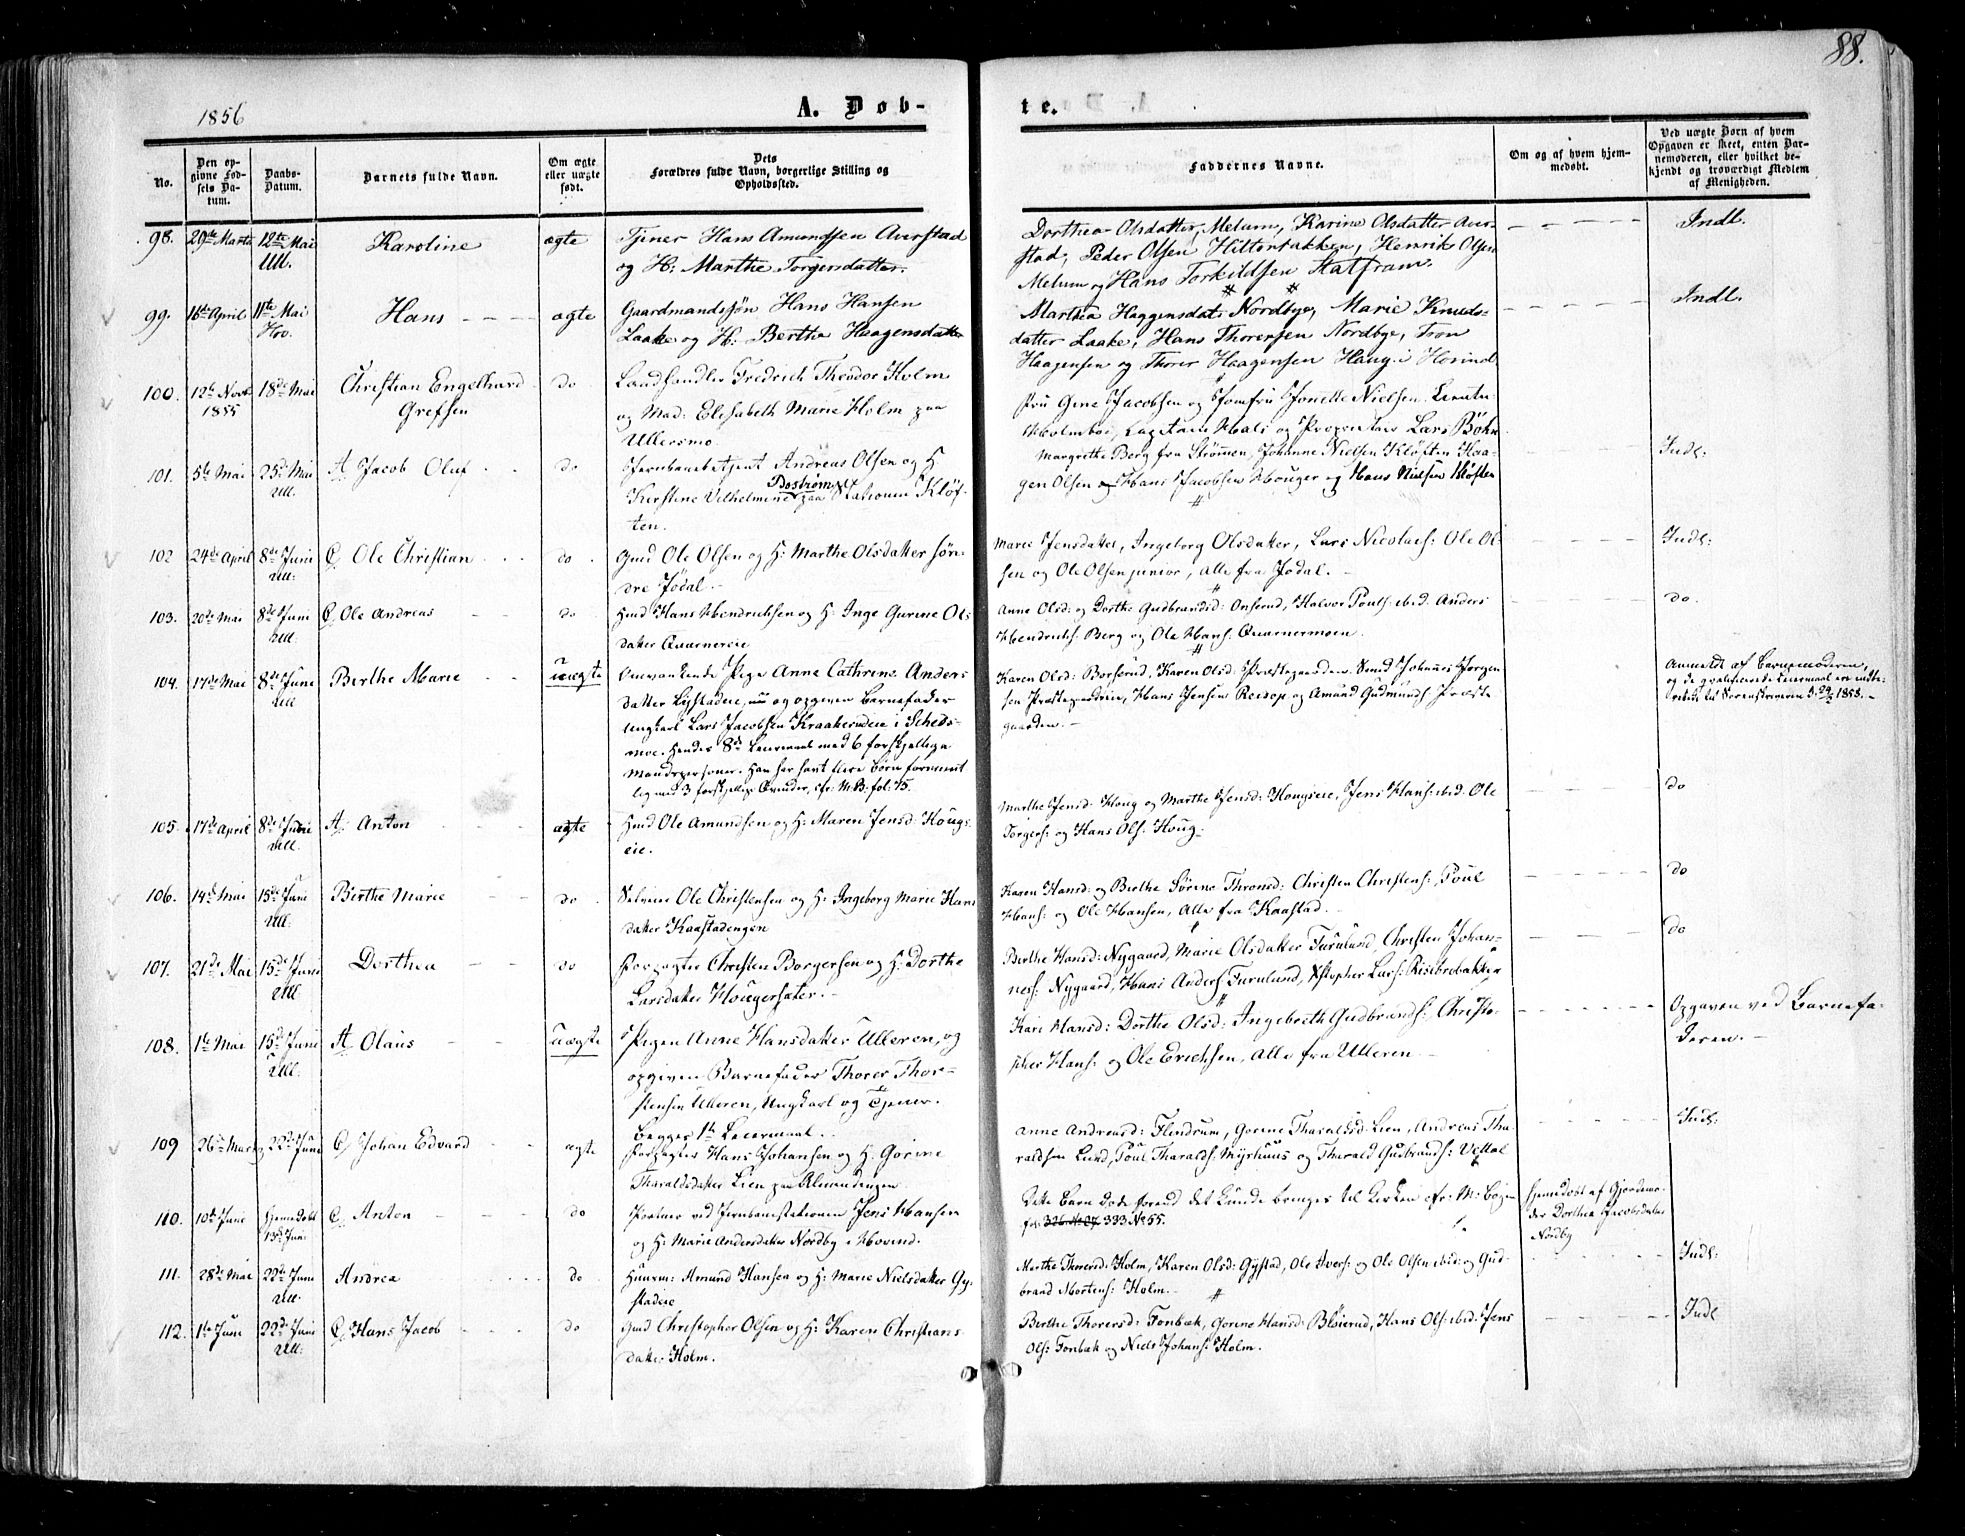 88.
1856
A. Døb-
te.
No.
Den op-
givne Fød-
sels Da-
tum.
Daabs-
Datum.
Barnets fulde Navn.
Om ægte
eller uægte
født.
Dets
Forældres fulde Navn, borgerlige Stilling og
Opholdssted.
Faddernes Navne.
Om og af hvem hjem-
medøbt.
Ved uægte Børn af hvem
Opgaven er skeet, enten Bar-
nemoderen, eller hvilket be-
kjendt og troværdigt Medlem
af Menigheden.
98. 29de Marts 12te Mai Karoline ægte Tjener Hans Amundsen Aurstad
Ull. og H: Marthe Torgersdatter.
Dorthea Olsdatter Melum, Karine Olsdatter Aur-
stad, Peder Olsen Hitterbakken, Henrik Olsen
Melum og Hans Torkildsen Statfram.
Indl.
99. 16de April 11te Mai Hans ægte Gaardmandssøn Hans Hansen
Hov. Laake og H: Berthe Haagensdatter
Marthea Haggensdat: Nordbye, Marie Knuds-
datter Laake, Hans Thorersen Nordbye, Tron
Haagensen og Thorer Haagensen Haug i Hovind
Indl.
100. 12te Novb. 18de Mai Christian Engelhard do Landhandler Fredrich Theodor Holm
1855 Grefsen og Mad: Elisabeth Marie Holm paa
Ullersmo
Fru Gine Jacobsen og Jomfru Jonette Nielsen. Lieutn:
Holmboe, Capitain Hals og Proprietair Lars Bøhn
101. 5te Mai 25de Mai A Jacob Oluf do Jernbanebetjent Andreas Olsen og H
Ull. Kirstine Vilhelmine Bostrøm paa Stationen Kløf-
ten.
Margrethe Berg fra Strømmen, Johanne Nielsen Kløften Haa-
gen Olsen og Hans Jacobsen Houger og Hans Nielsen Kløften
Indl:
102 24de April 8de Juni C, Ole Christian do Gmd Ole Olsen og H: Marthe Olsdatter søn-
Ull: dre Jødal.
Marie Jensdatter, Ingeborg Olsdatter, Lars Nicolais: Ole Ol-
sen og Ole Olsen junior, alle fra Jødal.
Indl:
103. 20de Mai 8de Juni C, Ole Andreas do Hmd Hans Hendrichsen og H: Inge Gurine Ols
Ull datter Quærnereie
Anne Olsd: og Dorth: Gudbrandsd: Onsrud, Halvor Pouls: ibid. Anders
Hendrichs: Berg og Ole Hans: Quærnermoen.
do.
104. 17de Mai 8de Juni Berthe Marie uægte Omvankende Pige Anne Cathrine Anders
Ull datter Lystadeie, og opgiven Barnefader
Ungkarl Lars Jacobsen Kraakerudeie i Scheds-
moe. Hendes 8de Leiermaal med 6 forskjellige
Mandspersoner. Han har havt flere Børn forment
lig med 3 forskjellige Qvinder, cfr: M.B. fol: 75.
Karen Olsd: Borserud, Karen Olsd: Præstegaarden. Smed Johannes Jørgen
sen Præstegaardeie, Hans Jensen Reesop og Amund Gudmunds: Præste
gaarden.
Anmeldt af Barnemoderen,
og de qvalificerede Leiermaal ere indbe-
rettede til Sorenskriveren d. 29/5 1858.
105. 17de April 8de Juni A, Anton ægte Hmd Ole Amundsen og H: Maren Jensd: Houg-
Ull. eie.
Marthe Jensd: Houg og Marthe Jensd: Hougseie, Jens Hans: ibid. Ole
Torgers: og Hans Ols: Houg.
do
106. 14de Mai 15de Juni Berthe Marie do Selveier Ole Christensen og H: Ingeborg Marie Hans
Ull. datter Kaastadengen
Karen Hansd: og Berthe Sørine Thronsd: Christen Christens: Poul
Hans: og Ole Hansen, Alle fra Kaastad.
do
107. 21de Mai 15de Juni Dorthea do Forpagter Christen Borgersen og H: Dorthe
Ull Larsdatter Hougersæter.
Berthe Hansd: Nygaard, Marie Olsdatter Furulund, Christen Johan-
nes: Nygaard, Hans Anders: Furulund, Xstopher Lars: Risebrobakken
do
108. 1te Mai 15de Juni A, Olaus uægte Pigen Anne Hansdatter Ulleren, og
Ull. opgiven Barnefader Thorer Thor-
stensen Ulleren, Ungkarl og Tjener.
Begges 1te Leiermaal.
Kari Hansd: Dorthe Olsd: Ingebreth Gudbrands: Christo-
pher Hans: og Ole Erichsen, alle fra Ulleren
Opgaven ved Barnefa-
deren.
109 26de Marts 22de Juni C, Johan Edvard ægte Forpagter Hans Johansen og H: Gorine
Tharaldsdatter Lien paa Almendingen
Anne Andreasd: Flindrum, Gorine Tharaldsd: Lien, Andreas Tha-
raldsen Lund, Poul Tharalds: Myrhuus og Tharald Gudbrands: Vettal
Indl:
110. 10de Juni Hjemedøbt C, Anton do Portner ved Jernbanestationen Jens Hansen
13de Juni og H: Marie Andersdatter Nordby i Hovind.
Dette Barn døde forend det kunde bringes til Kirken cfr: M: Bogen
fol: 326 No 27 333 No 55.
Hjemedøbt af Gjordemo-
der Dorthea Jacobsdatter
Nordby
111. 28de Mai 22de Juni Andrea do Huusm: Amund Hansen og H: Marie Nielsdatter Gy-
Ull. stadeie
Marthe Thorersd: Holm, Karen Olsd: Gystad, Ole Ivers: og Ole Olsen ibid: og Gud-
brand Mortens: Holm.
Indl:
112. 1te Juni 22de Juni C, Hans Jacob do Gmd Christopher Olsen og H: Karen Christians
Ull: datter Holm.
Berthe Thorersd: Fonbæk, Gorine Hansd: Bløierud, Hans Ols: ibid. Jens
Ols: Fonbæk og Niels Johans: Holm.
Indl